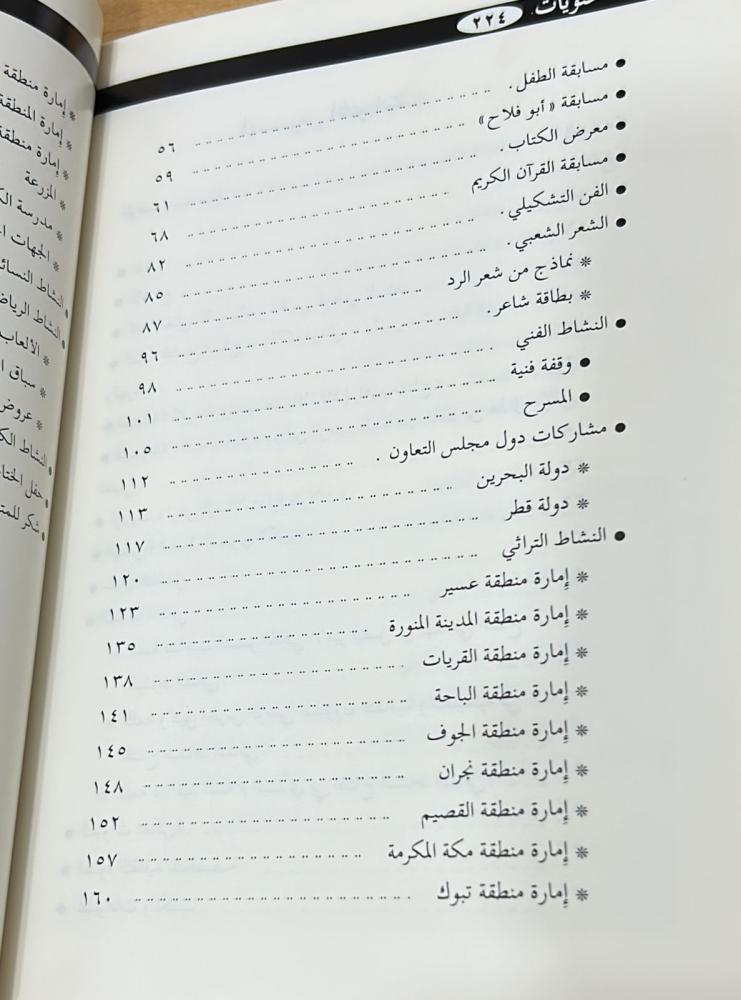 ٢٢٤
● مسابقة الطفل . ٥٦
● مسابقة «أبو فلاح» ٥٩
● معرض الكتاب . ٦١
● مسابقة القرآن الكريم ٦٨
● الفن التشكيلي . ٨٢
● الشعر الشعبي . ٨٥
❋ نماذج من شعر الرد ٨٧
❋ بطاقة شاعر . ٩٦
● النشاط الفني ٩٨
● وقفة فنية ١٠١
● المسرح ١٠٥
● مشاركات دول مجلس التعاون . ١١٢
❋ دولة البحرين ١١٣
❋ دولة قطر ١١٧
● النشاط التراثي ١٢٠
❋ إمارة منطقة عسير ١٢٣
❋ إمارة منطقة المدينة المنورة ١٣٥
❋ إمارة منطقة القريات ١٣٨
❋ إمارة منطقة الباحة ١٤١
❋ إمارة منطقة الجوف ١٤٥
❋ إمارة منطقة نجران ١٤٨
❋ إمارة منطقة القصيم ١٥٢
❋ إمارة منطقة مكة المكرمة ١٥٧
❋ إمارة منطقة تبوك ١٦٠
❋ إمارة منطقة
❋ إمارة المنطقة
❋ إمارة منطقة
❋ المزرعة
❋ مدرسة
❋ الجهات
● النشاط
● النشاط
❋ الألعاب
❋ سباق
❋ عروض
● النشاط
● حفل
● شكر